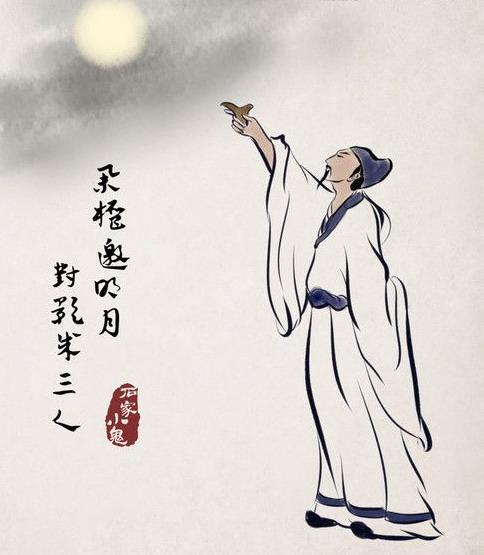 舉杯邀明月
對影成三人
石家
小鬼